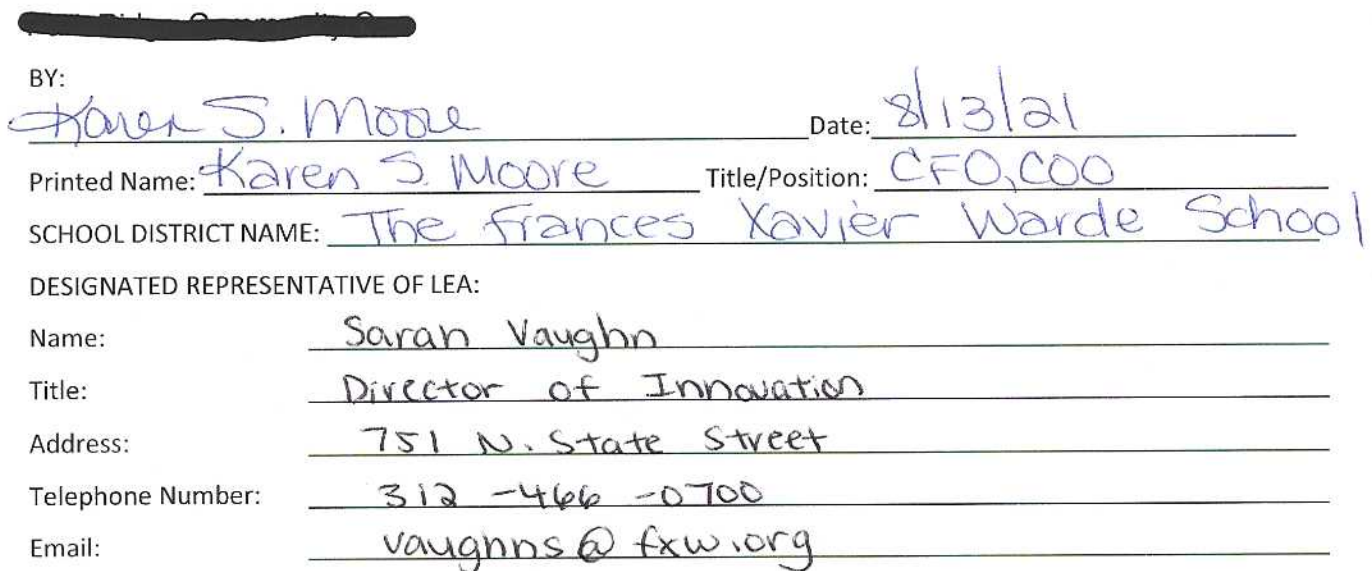 BY:
Karen S. Moore Date: 8/13/21
Printed Name: Karen S. Moore Title/Position: CFO, COO
SCHOOL DISTRICT NAME: The Frances Xavier Warde School
DESIGNATED REPRESENTATIVE OF LEA:
Name: Sarah Vaughn
Title: Director of Innovation
Address: 751 N. State Street
Telephone Number: 312-466-0700
Email: vaughns@fxw.org